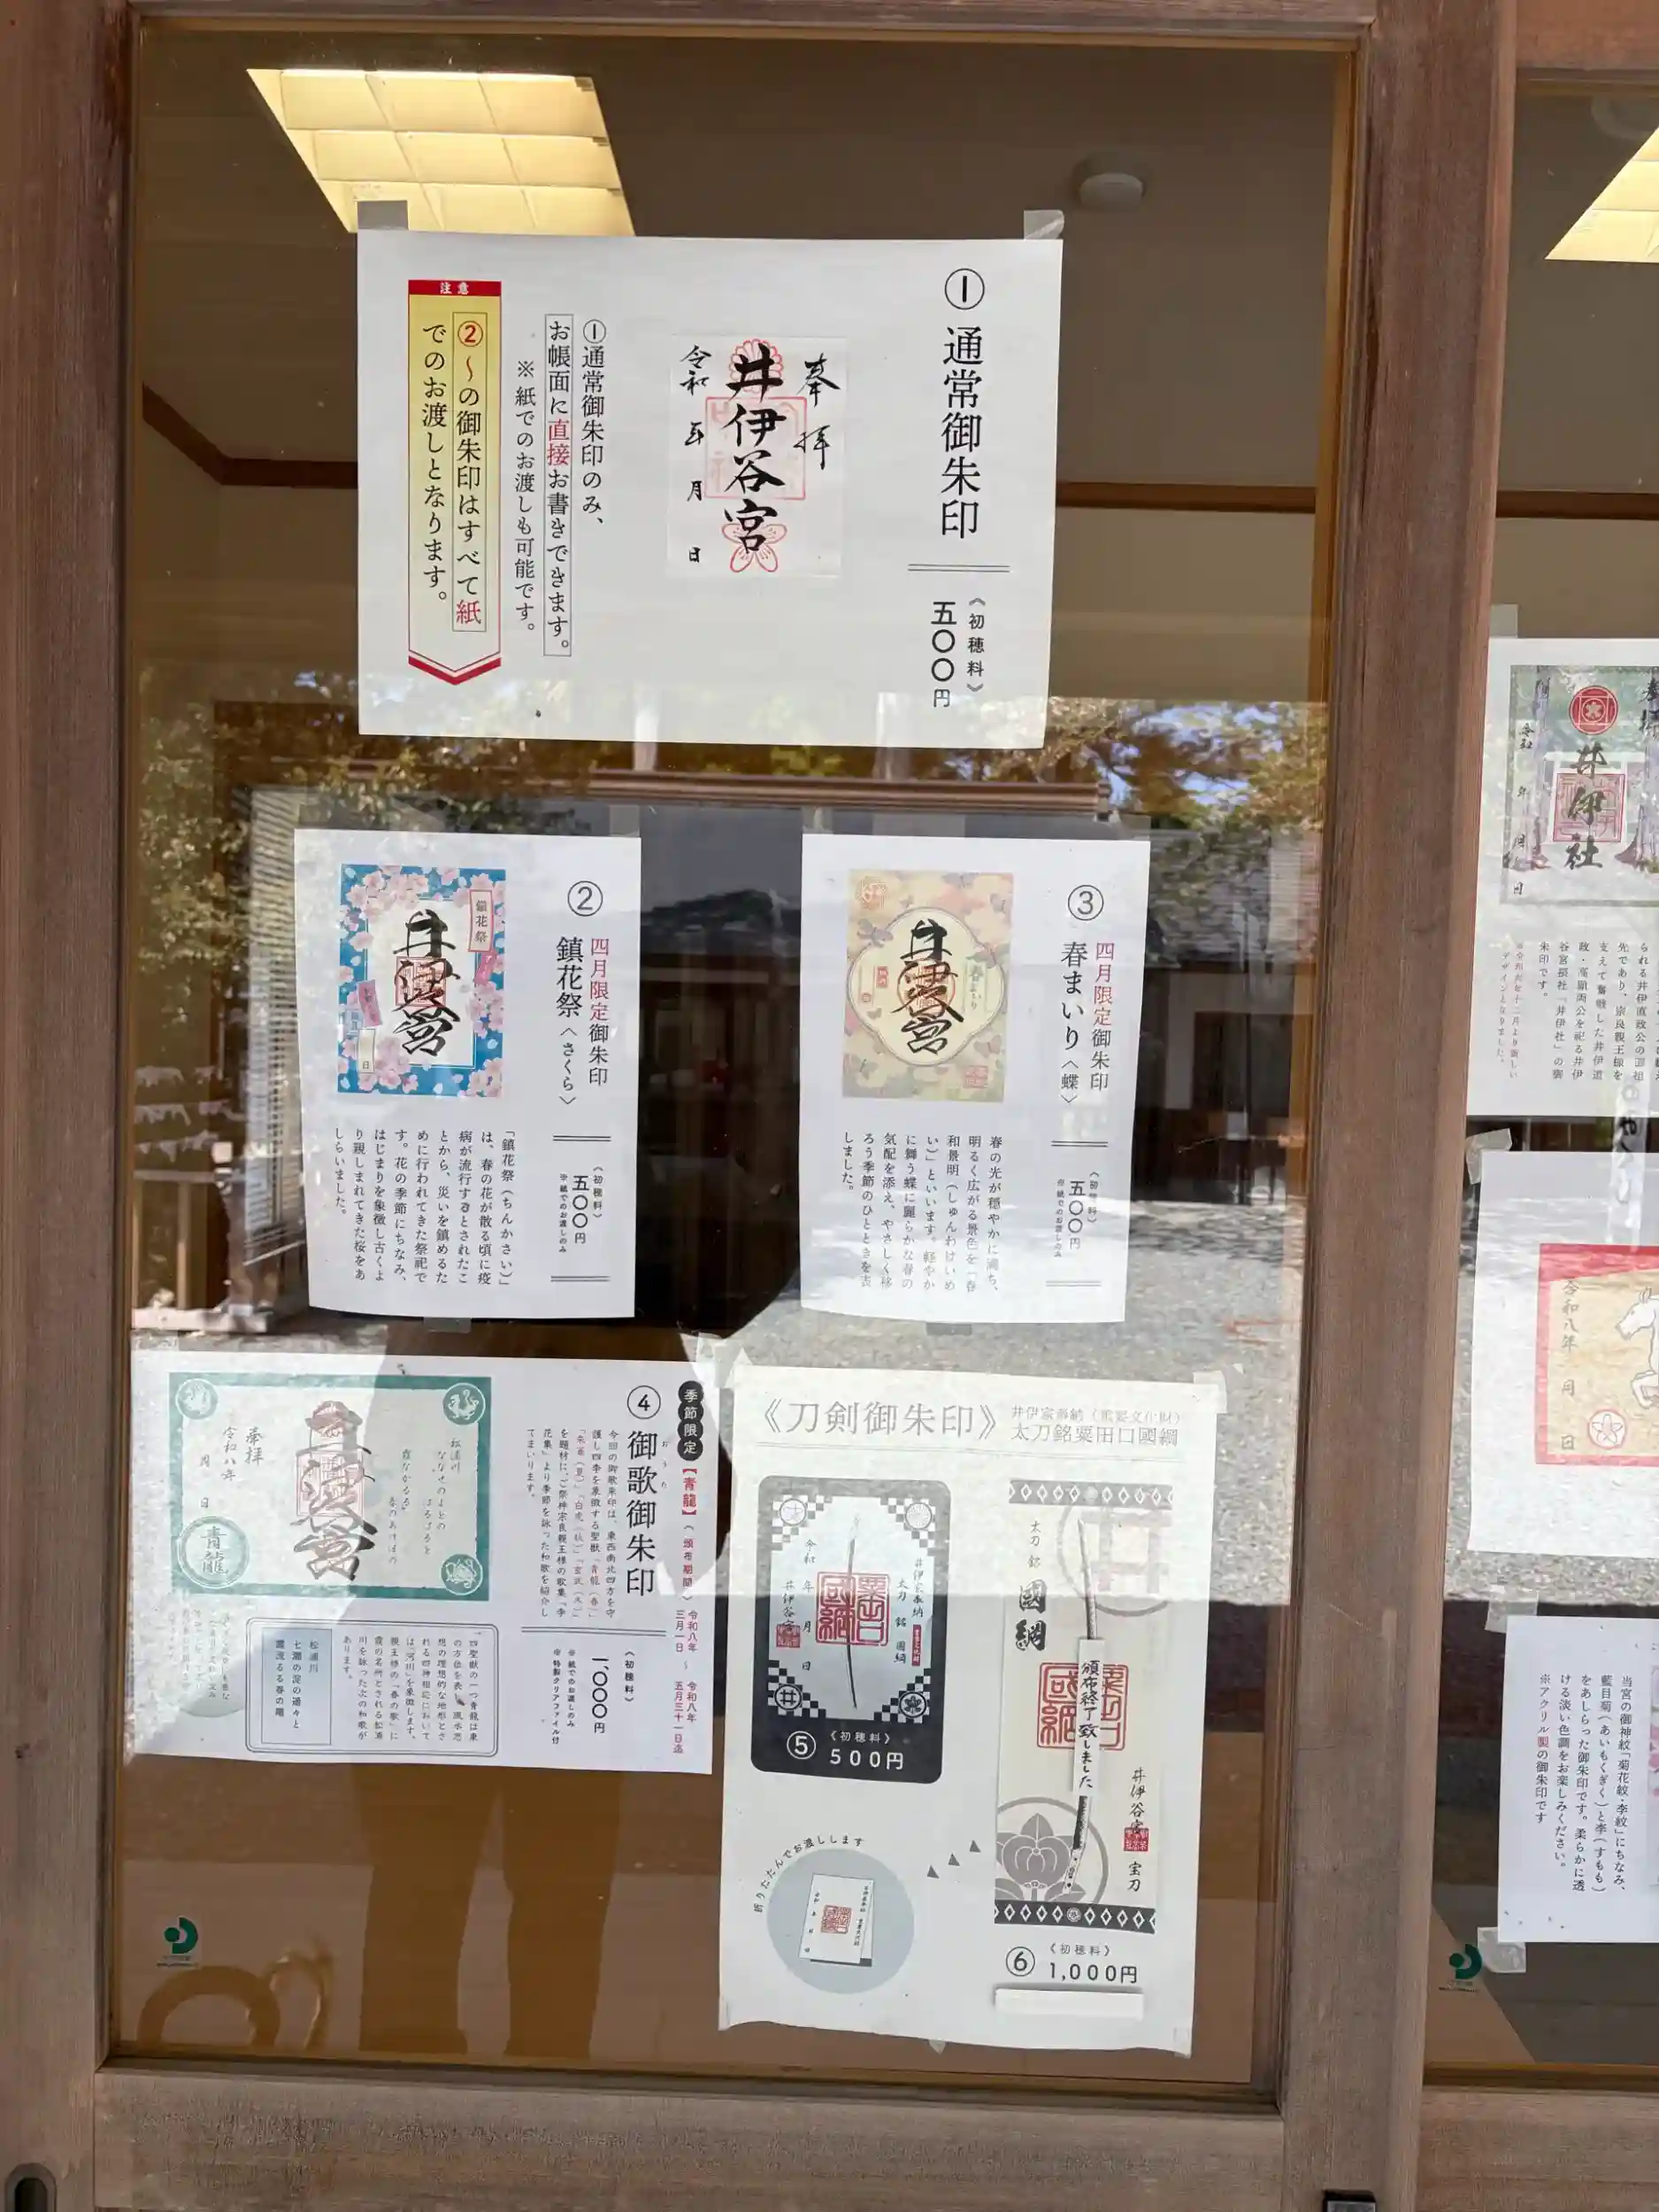 ① 通常御朱印
《初穂料》
五〇〇円
奉拝
井伊谷宮
令和 年 月 日
①通常御朱印のみ、
お帳面に直接お書きできます。
※紙でのお渡しも可能です。
注意
②～の御朱印はすべて紙
でのお渡しとなります。
②
四月限定御朱印
鎮花祭〈さくら〉
《初穂料》
五〇〇円
※紙でのお渡しのみ
鎮花祭
井伊谷宮
日
「鎮花祭(ちんかさい)」
は、春の花が散る頃に疫
病が流行するとされたこ
とから、災いを鎮めるた
めに行われてきた祭祀で
す。花の季節にちなみ、
はじまりを象徴し古くよ
り親しまれてきた桜をあ
しらいました。
③
四月限定御朱印
春まいり〈蝶〉
《初穂料》
五〇〇円
※紙でのお渡しのみ
春まいり
井伊谷宮
春の光が穏やかに満ち、
明るく広がる景色を「春
和景明(しゅんわけいめ
い)」といいます。軽やか
に舞う蝶に麗らかな春の
気配を添え、やさしく移
ろう季節のひとときを表
しました。
季節限定
【青龍】
《頒布期間》
令和八年
三月一日
～
令和八年
五月三十一日迄
④
御歌御朱印
おうた
《初穂料》
一、〇〇〇円
※紙でのお渡しのみ
※特製クリアファイル付
今回の御歌御朱印は、東西南北四方を守
護し四季を象徴する聖獣「青龍(春)」
「朱雀(夏)」「白虎(秋)」「玄武(冬)」
を題材に、ご祭神宗良親王様の歌集「李
花集」より季節を詠った和歌を紹介し
てまいります。
松浦川
ななせのよどの
はるばると
霞ながるる
春のあけぼの
井伊谷宮
奉拝
令和八年
月 日
青龍
四聖獣の一つ青龍は東
の方位を表し、風水思
想の理想的な地形とさ
れる四神相応において
は「河川」を象徴します。
親王様の「春の歌」に
霞の名所とされる松浦
川を詠った次の和歌が
あります。
松浦川
七瀬の淀の遥々と
霞流るる春の曙
《刀剣御朱印》
井伊家奉納(重要文化財)
太刀銘粟田口國綱
井伊家奉納
太刀 銘 國綱
重要文化財
粟田口
國綱
令和 年 月 日
井伊谷宮
⑤
《初穂料》
500円
太刀 銘
國綱
粟田口
國綱
頒布終了致しました
井伊谷宮
宝刀
⑥
《初穂料》
1,000円
折りたたんでお渡しします
井伊社
令和 年 月 日
られる井伊直政公の御祖
先であり、宗良親王様を
支えて奮戦した井伊道
政・高顕両公を祀る井伊
谷宮摂社「井伊社」の御
朱印です。
令和八年 月 日
当宮の御神紋「菊花紋・李紋」にちなみ、
藍目菊(あいもくぎく)と李(すもも)
をあしらった御朱印です。柔らかに透
ける淡い色調をお楽しみください。
※アクリル製の御朱印です